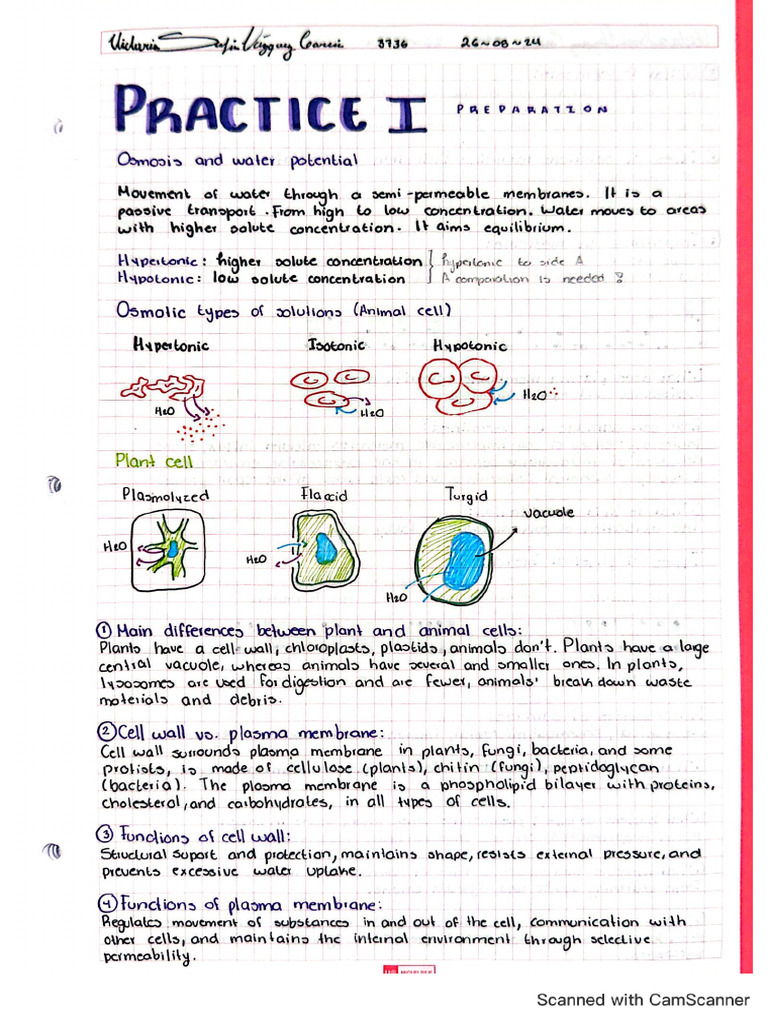 Victoria Sofía Vázquez García 3736 26~08~24
PRACTICE I PREPARATION
Osmosis and water potential
Movement of water through a semi-permeable membranes. It is a
passive transport. From high to low concentration. Water moves to areas
with higher solute concentration. It aims equilibrium.
Hypertonic: higher solute concentration } hypertonic to side A
Hypotonic: low solute concentration } A comparation is needed
Osmotic types of solutions (Animal cell)
Hypertonic Isotonic Hypotonic
H2O H2O H2O
Plant cell
Plasmolyzed Flaccid Turgid
vacuole
H2O H2O H2O
① Main differences between plant and animal cells:
Plants have a cell wall, chloroplasts, plastids, animals don't. Plants have a large
central vacuole, whereas animals have several and smaller ones. In plants,
lysosomes are used for digestion and are fewer, animals' break down waste
materials and debris.
② Cell wall vs. plasma membrane:
Cell wall surrounds plasma membrane in plants, fungi, bacteria, and some
protists, is made of cellulose (plants), chitin (fungi), peptidoglycan
(bacteria). The plasma membrane is a phospholipid bilayer with proteins,
cholesterol, and carbohydrates, in all types of cells.
③ Functions of cell wall:
Structural suport and protection, maintains shape, resists external pressure, and
prevents excessive water uptake.
④ Functions of plasma membrane:
Regulates movement of substances in and out of the cell, communication with
other cells, and maintains the internal environment through selective
permeability.
Scanned with CamScanner